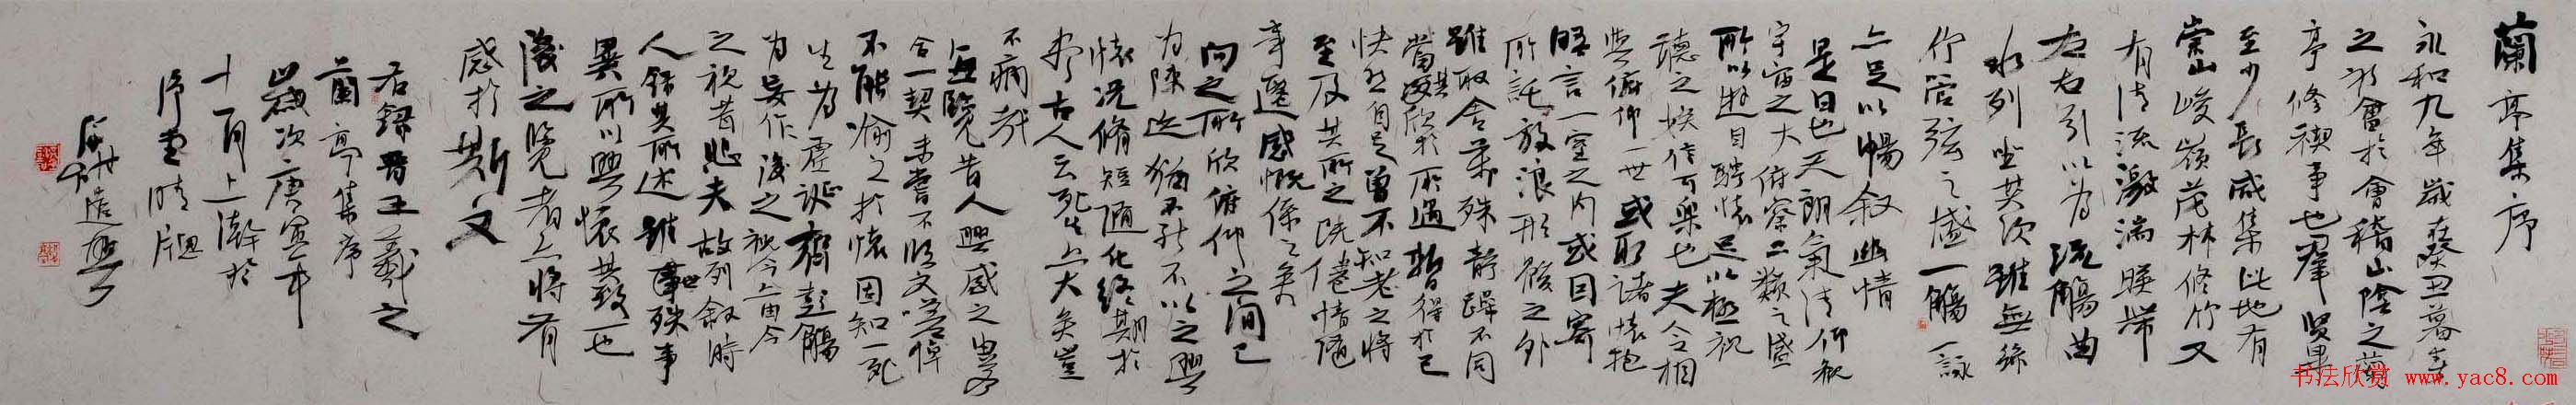 蘭亭集序
永和九年歲在癸丑暮春
之初會於會稽山陰之蘭
亭修禊事也羣賢畢
至少長咸集此地有
崇山峻嶺茂林修竹又
有清流激湍暎帶
左右引以為流觴曲
水列坐其次雖無絲
竹管弦之盛一觴一詠
亦足以暢叙幽情
是日也天朗氣清仰觀
宇宙之大俯察品類之盛
所以遊目騁懷足以極視
聽之娛信可樂也夫人相
與俯仰一世或取諸懷抱
晤言一室之內或因寄
所託放浪形骸之外
雖取舍萬殊靜躁不同
當其欣於所遇暫得於己
快然自足曾不知老之將
至及其所之既倦情隨
事遷感慨係之矣
向之所欣俯仰之間已
為陳迹猶不能不以之興
懷況脩短隨化終期於
盡古人云死生亦大矣豈
不痛哉
每覽昔人興感之由若
合一契未嘗不臨文嗟悼
不能喻之於懷固知一死
生為虛誕齊彭殤
為妄作後之視今亦由今
之視昔悲夫故列叙時
人錄其所述雖世殊事
異所以興懷其致一也
後之覽者亦將有
感於斯文
右錄晉王羲之
蘭亭集序
歲次庚寅年
十一月上澣於
堂晴窗
书法欣赏 www.yac8.com